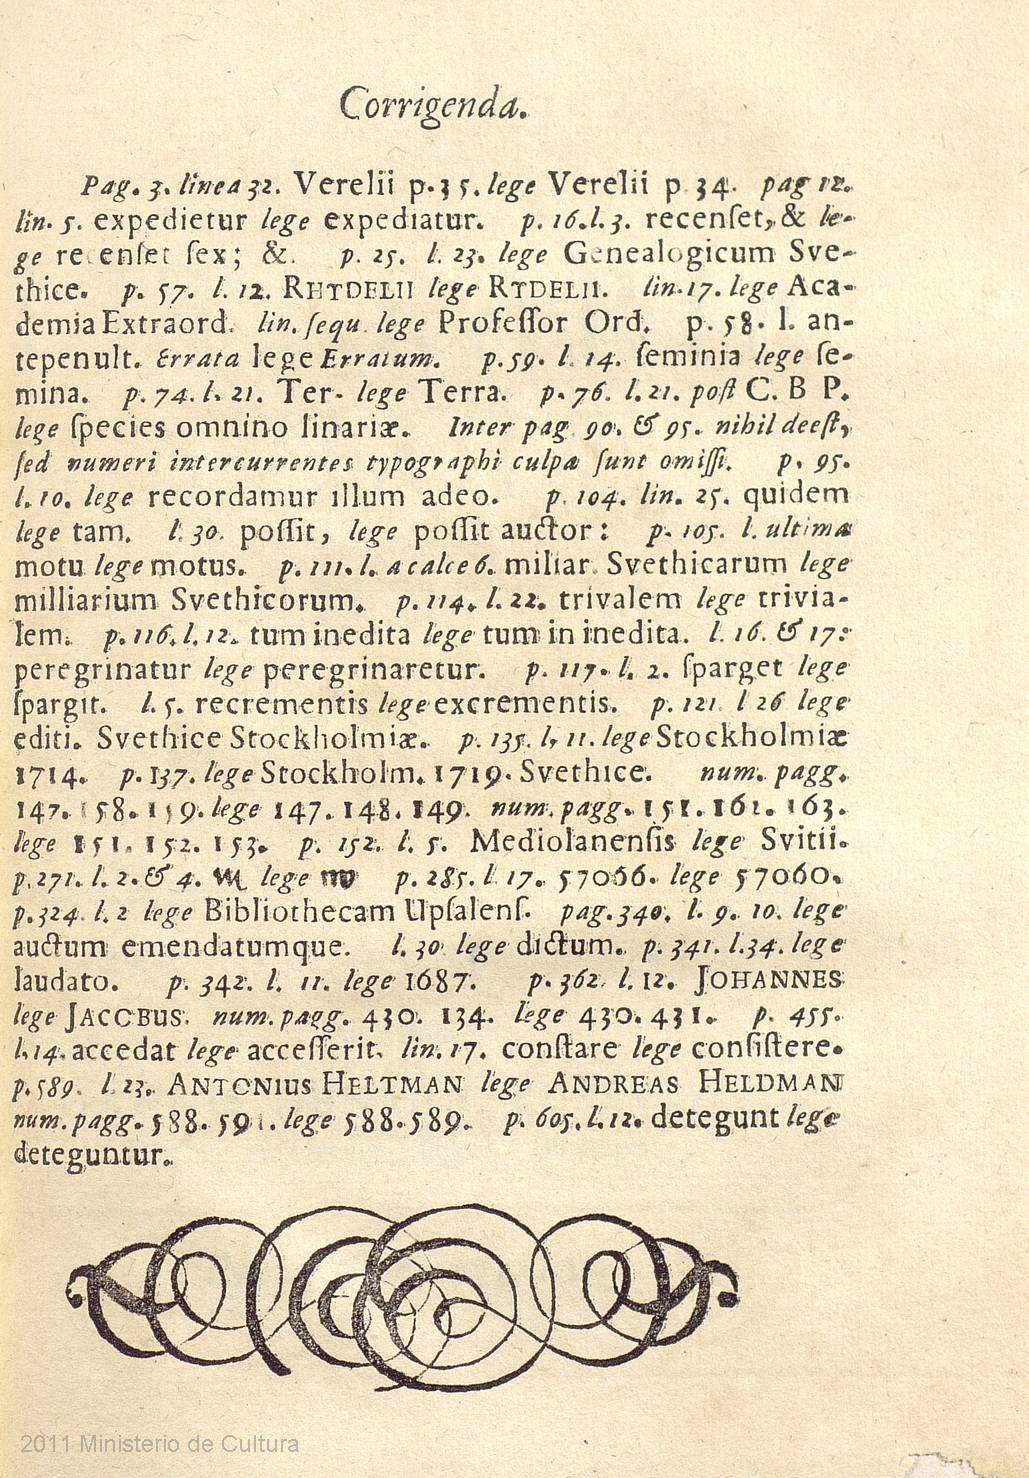 Corrigenda.
Pag. 3. linea 32. Verelii p. 35. lege Verelii p 34. pag 12.
lin. 5. expedietur lege expediatur. p. 16. l. 3. recenſet, & le-
ge recenſet ſex; &. p. 25. l. 23. lege Genealogicum Sve-
thice. p. 57. l. 12. RHTDELII lege RTDELII. lin. 17. lege Aca-
demia Extraord. lin. ſequ. lege Profeſſor Ord. p. 58. l. an-
tepenult. Errata lege Erratum. p. 59. l. 14. ſeminia lege ſe-
mina. p. 74. l. 21. Ter- lege Terra. p. 76. l. 21. poſt C. B P.
lege ſpecies omnino linariæ. Inter pag 90. & 95. nihil deeſt,
ſed numeri intercurrentes typographi culpa ſunt omiſſi. p. 95.
l. 10. lege recordamur illum adeo. p. 104. lin. 25. quidem
lege tam. l. 30. poſſit, lege poſſit auctor: p. 105. l. ultima
motu lege motus. p. 111. l. a calce 6. miliar. Svethicarum lege
milliarium Svethicorum. p. 114. l. 22. trivalem lege trivia-
lem. p. 116. l. 12. tum inedita lege tum in inedita. l. 16. & 17:
peregrinatur lege peregrinaretur. p. 117. l. 2. ſparget lege
ſpargit. l. 5. recrementis lege excrementis. p. 121 l 26 lege
editi. Svethice Stockholmiæ. p. 135. l. 11. lege Stockholmiæ
1714. p. 137. lege Stockholm. 1719. Svethice. num. pagg.
147. 158. 159. lege 147. 148. 149. num. pagg. 151. 161. 163.
lege 151. 152. 153. p. 152. l. 5. Mediolanenſis lege Svitii.
p. 271. l. 2. & 4. ♏ lege ♍ p. 285. l 17. 57066. lege 57060.
p. 324. l. 2 lege Bibliothecam Upſalenſ. pag. 340. l. 9. 10. lege
auctum emendatumque. l. 30 lege dictum. p. 341. l. 34. lege
laudato. p. 342. l. 11. lege 1687. p. 362. l. 12. JOHANNES
lege JACOBUS. num. pagg. 430. 134. lege 430. 431. p. 455.
l. 14. accedat lege acceſſerit. lin. 17. conſtare lege conſiſtere.
p. 589. l. 23. ANTONIUS HELTMAN lege ANDREAS HELDMAN
num. pagg. 588. 591. lege 588. 589. p. 605. l. 12. detegunt lege
deteguntur.
2011 Ministerio de Cultura